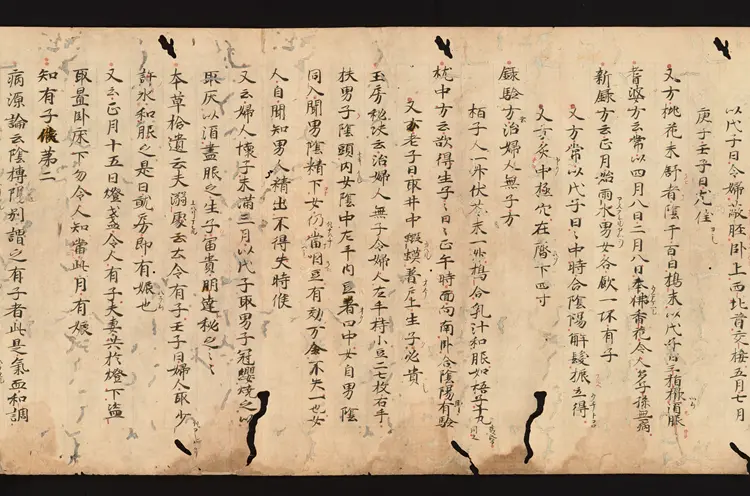 以戊子日令婦敞胫卧上西北首交接五月七月
庚子壬子日尤佳
又方桃花未舒者陰干百日搗末以戊子日三指撮酒服
耆婆方云常以四月八日二月八日奉佛香花令人多子孫無病
新録方云正月始雨水男女各飲一坏有子
又方常以戊子日々中時合陰陽解髮振立得
又方灸中極穴在齊下四寸
録驗方治婦人無子方
栢子人一升伏苓末一升搗合乳汁和服如梧子十丸
枕中方云欲得生子々日正午時面向南卧合陰陽有驗
又云老子曰取井中蝦蟆著戶上生子必貴
玉房秘決云治婦人無子令婦人左手持小豆二七枚右手
扶男子陰頭内女陰中左手内豆著口中女自男陰
同入聞男陰精下女仍當咽豆有効万全不失一也女
人自聞知男人精出不得失時候
又云婦人懐子未滿三月以戊子取男子冠纓燒之以
取灰以酒盡服之生子富貴明達秘之々
本草拾遺云夫溺處云々令有子壬子日婦人取少
許水和服之是日就房即有娠也
又云正月十五日燈盞令人有子夫妻共於燈下盜
取置卧床下勿令人知當此月有娠
知有子候第二
病源論云陰搏陽別謂之有子者此是氣血和調